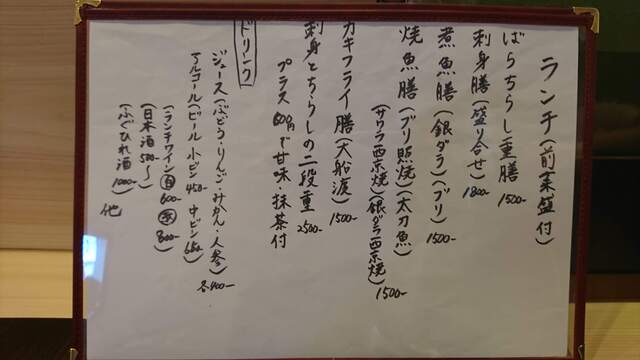 ランチ(前菜盛付)
ばらちらし重膳 1500-
刺身膳(盛り合せ) 1800-
煮魚膳(銀ダラ)(ブリ) 1500-
焼魚膳(ブリ照焼)(太刀魚)
(サワラ西京焼)(銀ダラ西京焼) 1500-
カキフライ膳(大船渡) 1500-
刺身とちらしの二段重 2500-
プラス600円で甘味・抹茶付
ドリンク
ジュース(ぶどう・りんご・みかん・人参) 各400-
アルコール(ビール 小ビン 450- 中ビン 650-
(ランチワイン 白 600- 赤 800-
(日本酒 500-~)
(ふぐひれ酒 1000-) 他